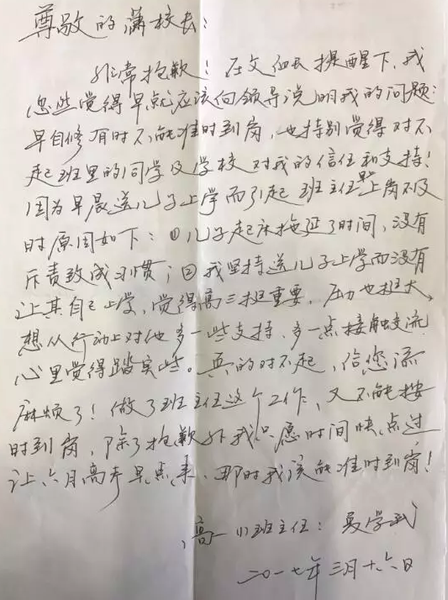 尊敬的潇校长：
非常抱歉！在文 提醒下，我
您些觉得早就应该向领导说明我的问题：
早自修有时不能准时到岗，也特别觉得对不
起班里的同学及学校对我的信任和支持！
因为早晨送儿子上学而引起班主任早上岗不及
时原因如下：①儿子起床拖延了时间，没有
斥责致成习惯；②我坚持送儿子上学而没有
让其自己上学，觉得高三挺重要，压力也挺大，
想从行动上对他多一些支持，多一点接触交流
心里觉得踏实些。真的对不起，给您添
麻烦了！做了班主任这个工作，又不能按
时到岗，除了抱歉外我只愿时间快点过
让六月高考早点来，那时我该能准时到岗！
高一(1)班主任：夏学武
二〇一七年三月十六日